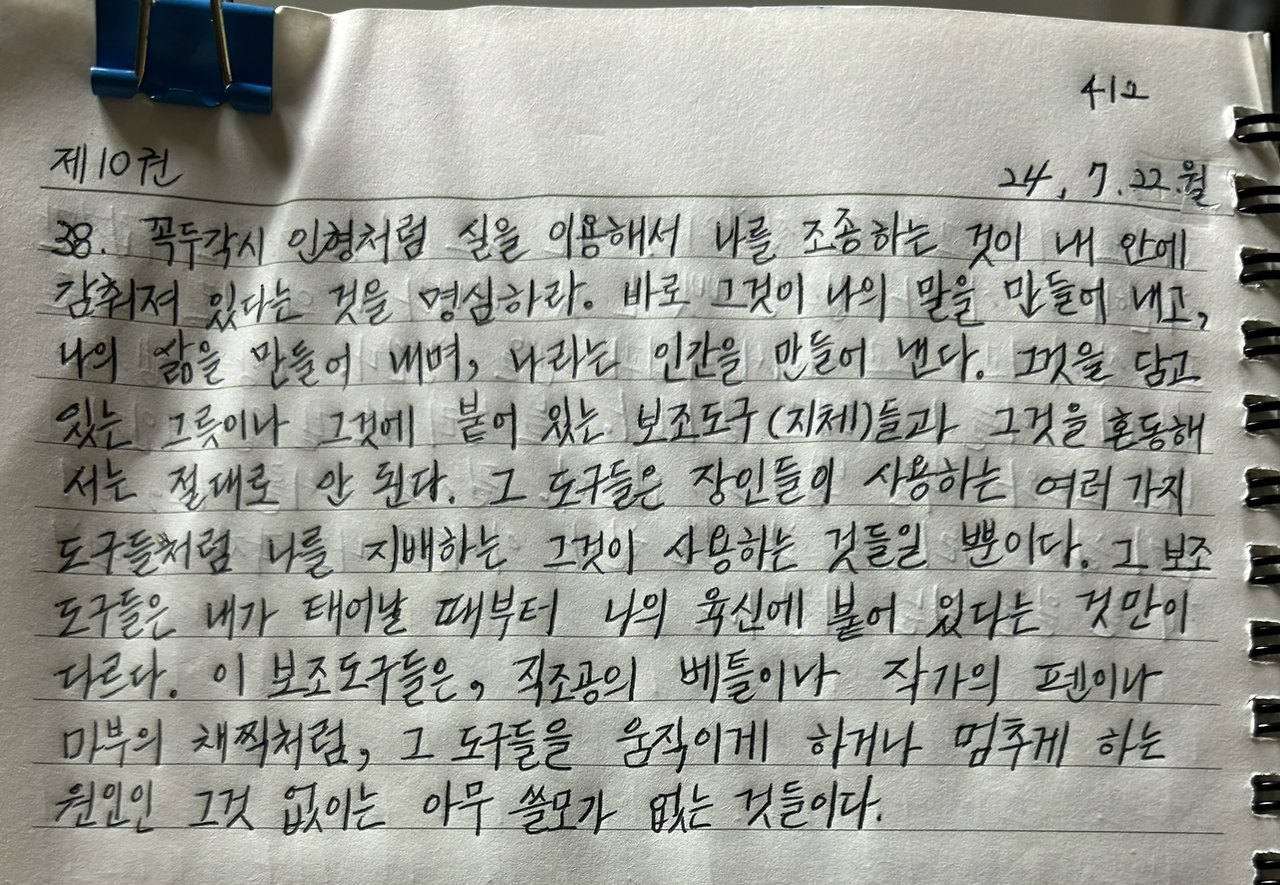 412
제10권 24. 7. 22. 월
38. 꼭두각시 인형처럼 실을 이용해서 나를 조종하는 것이 내 안에
감춰져 있다는 것을 명심하라. 바로 그것이 나의 말을 만들어 내고,
나의 삶을 만들어 내며, 나라는 인간을 만들어 낸다. 그것을 담고
있는 그릇이나 그것에 붙어 있는 보조도구(지체)들과 그것을 혼동해
서는 절대로 안 된다. 그 도구들은 장인들이 사용하는 여러 가지
도구들처럼 나를 지배하는 그것이 사용하는 것들일 뿐이다. 그 보조
도구들은 내가 태어날 때부터 나의 육신에 붙어 있다는 것만이
다르다. 이 보조도구들은, 직조공의 베틀이나 작가의 펜이나
마부의 채찍처럼, 그 도구들을 움직이게 하거나 멈추게 하는
원인인 그것 없이는 아무 쓸모가 없는 것들이다.